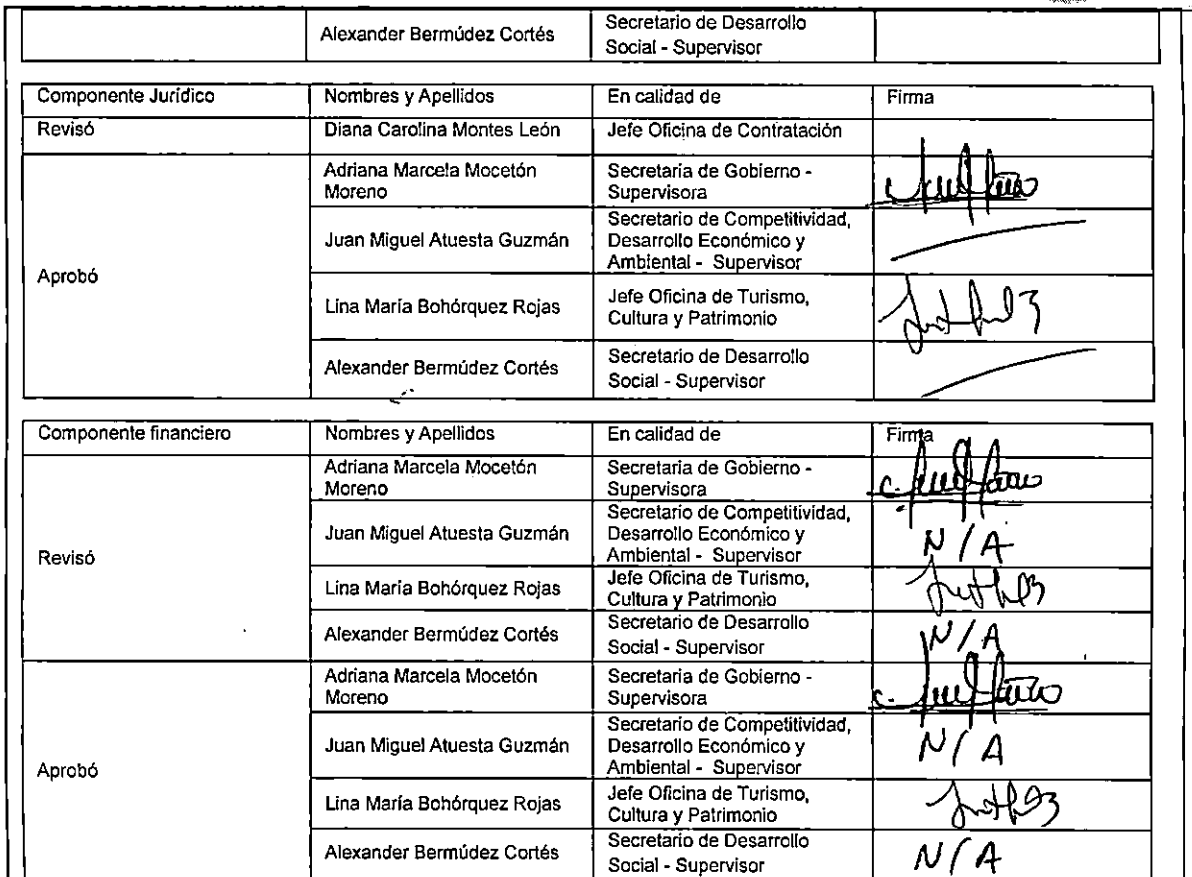 Alexander Bermúdez Cortés
Secretario de Desarrollo
Social - Supervisor
Componente Jurídico
Nombres y Apellidos
En calidad de
Firma
Revisó
Diana Carolina Montes León
Jefe Oficina de Contratación
Aprobó
Adriana Marcela Mocetón
Moreno
Secretaria de Gobierno -
Supervisora
Juan Miguel Atuesta Guzmán
Secretario de Competitividad,
Desarrollo Económico y
Ambiental - Supervisor
Lina María Bohórquez Rojas
Jefe Oficina de Turismo,
Cultura y Patrimonio
Alexander Bermúdez Cortés
Secretario de Desarrollo
Social - Supervisor
Componente financiero
Nombres y Apellidos
En calidad de
Firma
Revisó
Adriana Marcela Mocetón
Moreno
Secretaria de Gobierno -
Supervisora
Juan Miguel Atuesta Guzmán
Secretario de Competitividad,
Desarrollo Económico y
Ambiental - Supervisor
N/A
Lina María Bohórquez Rojas
Jefe Oficina de Turismo,
Cultura y Patrimonio
Alexander Bermúdez Cortés
Secretario de Desarrollo
Social - Supervisor
N/A
Aprobó
Adriana Marcela Mocetón
Moreno
Secretaria de Gobierno -
Supervisora
Juan Miguel Atuesta Guzmán
Secretario de Competitividad,
Desarrollo Económico y
Ambiental - Supervisor
N/A
Lina María Bohórquez Rojas
Jefe Oficina de Turismo,
Cultura y Patrimonio
Alexander Bermúdez Cortés
Secretario de Desarrollo
Social - Supervisor
N/A